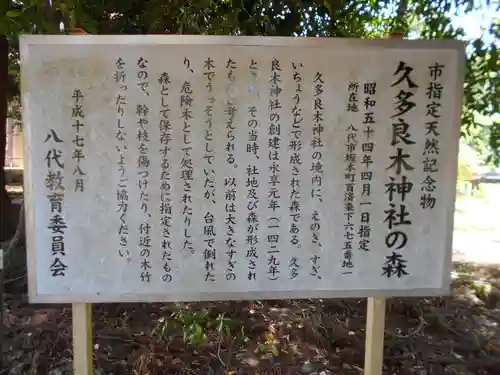 市指定天然記念物
久多良木神社の森
昭和五十四年四月一日指定
所在地 八代市坂本町百済来下六七五番地一
久多良木神社の境内に、えのき、すぎ、
いちょうなどで形成された森である。久多
良木神社の創建は永享元年(一四二九年)
とされ、その当時、社地及び森が形成され
たものと考えられる。以前は大きなすぎの
木でうっそうとしていたが、台風で倒れた
り、危険木として処理されたりした。
森として保存するために指定されたもの
なので、幹や枝を傷つけたり、付近の木竹
を折ったりしないようご協力ください。
平成十七年八月
八代教育委員会